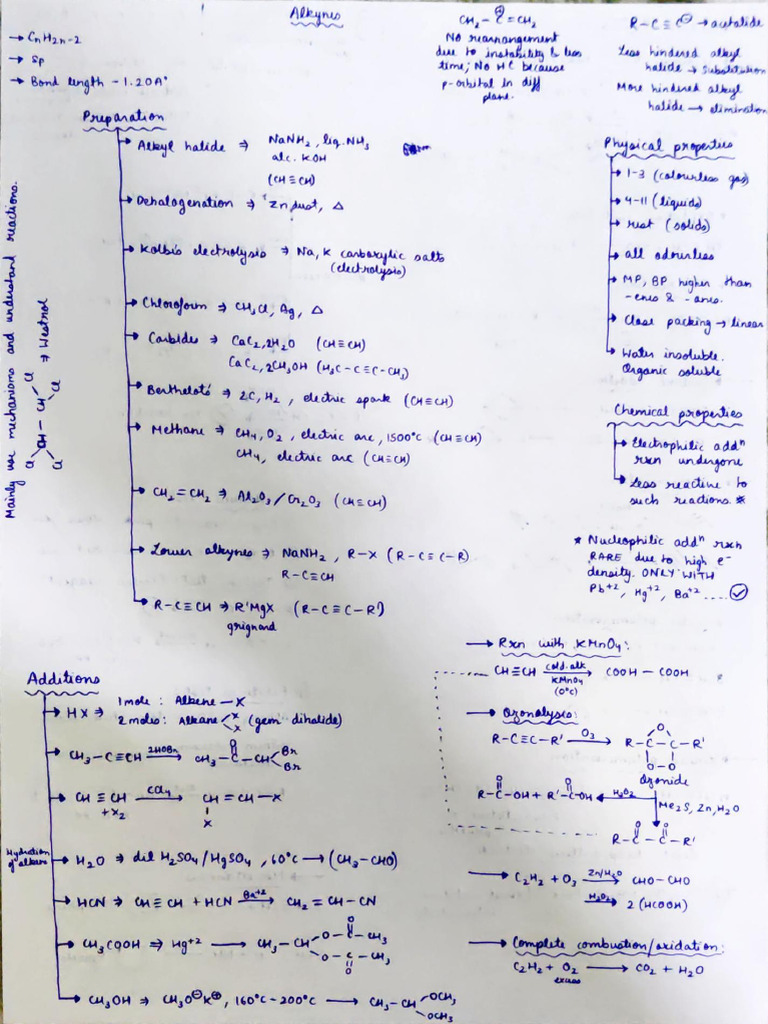 Alkynes
→ CnH2n-2
→ sp
→ Bond length - 1.20A°
CH2 - C⊕ = CH2
No rearrangement
due to instability & less
time; No HC because
p-orbital in diff
plane.
R-C≡C⊖ → acetalide
Less hindered alkyl
halide → substitution
More hindered alkyl
halide → elimination
Preparation
→ Alkyl halide ⇒ NaNH2, liq. NH3
alc. KOH
(CH≡CH)
→ Dehalogenation ⇒ Zn dust, △
→ Kolbis electrolysis ⇒ Na, K carboxylic salts
(electrolysis)
→ Chloroform ⇒ CH3Cl, Ag, △
→ Carbides ⇒ CaC2, 2H2O (CH≡CH)
CaC2, 2CH3OH (H3C-C≡C-CH3)
→ Berthelot's ⇒ 2C, H2, electric spark (CH≡CH)
→ Methane ⇒ CH4, O2, electric arc, 1500°C (CH≡CH)
CH4, electric arc (CH≡CH)
→ CH2=CH2 ⇒ Al2O3/Cr2O3 (CH≡CH)
→ Lower alkynes ⇒ NaNH2, R-X (R-C≡C-R)
R-C≡CH
→ R-C≡CH ⇒ R'MgX (R-C≡C-R')
grignard
Mainly use mechanisms and understand reactions.
Cl Cl
CH - CH ⇒ Westrol
Cl Cl
Physical properties
→ 1-3 (colourless gas)
→ 4-11 (liquids)
→ rest (solids)
→ all odourless
→ MP, BP higher than
-enes & -anes.
→ Close packing → linear
→ Water insoluble.
Organic soluble
Chemical properties
→ Electrophilic addn
rxn undergone
→ Less reactive to
such reactions. *
* Nucleophilic addn rxn
RARE due to high e-
density. ONLY WITH
Pb+2, Hg+2, Ba+2 ..... ✓
Additions
→ HX ⇒ 1 mole : Alkene - X
2 moles : Alkane < X X (gem dihalide)
→ CH3-C≡CH 2HOBr → CH3-C(=O)-CH < Br Br
→ CH≡CH + X2 CCl4 → CH=CH-X
X
Hydration of alkane
→ H2O ⇒ dil H2SO4/HgSO4, 60°C → (CH3-CHO)
→ HCN ⇒ CH≡CH + HCN Ba+2 → CH2=CH-CN
→ CH3COOH ⇒ Hg+2 → CH3-CH < O-C(=O)-CH3 O-C(=O)-CH3
→ CH3OH ⇒ CH3O⊖K⊕, 160°C-200°C → CH3-CH < OCH3 OCH3
→ Rxn with KMnO4:
CH≡CH cold. alk KMnO4 (0°C) → COOH - COOH
→ Ozonalysis:
R-C≡C-R' O3 → R-C-C-R'
O
O-O
Ozonide
R-C(=O)-OH + R'-C(=O)-OH ← H2O2
Me2S, Zn, H2O
R-C(=O)-C(=O)-R'
→ C2H2 + O3 Zn/H2O → CHO-CHO
H2O2 → 2(HCOOH)
→ Complete combustion/oxidation:
C2H2 + O2 excess → CO2 + H2O